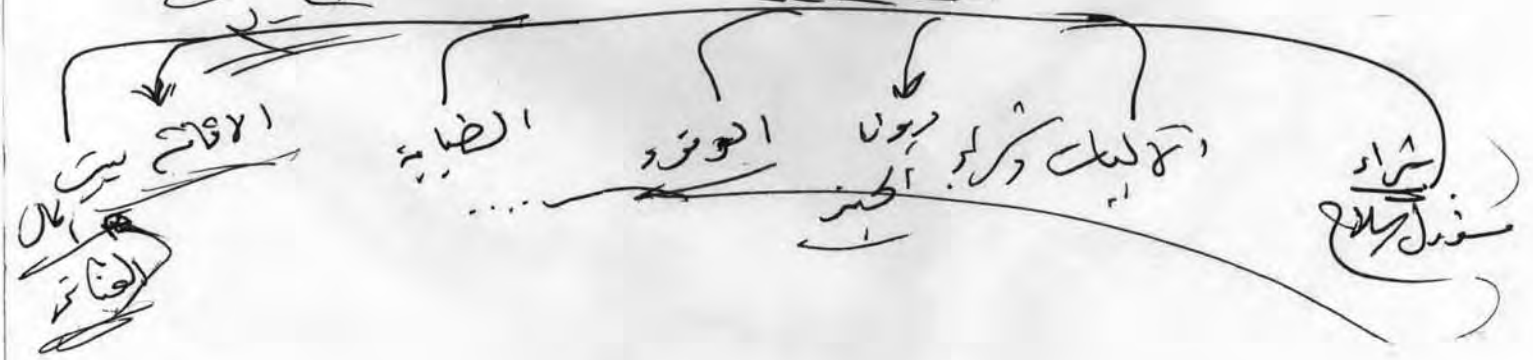 شراء
مسؤول السلاح
الآليات وشراء
ديوان
الجند
الوقود
....
الضيافة
الاقامة
بيت
المال